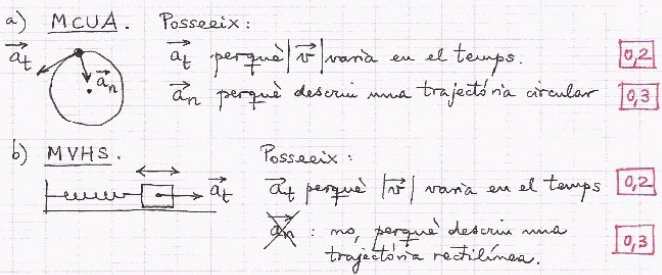 a) MCUA. Posseeix:
a⃗t perquè |v⃗| varia en el temps. 0,2
a⃗t
a⃗n
a⃗n perquè descriu una trajectória circular 0,3
b) MVHS. Posseeix:
a⃗t
a⃗t perquè |v⃗| varia en el temps 0,2
a⃗n : no, perquè descriu una
trajectória rectilínea. 0,3